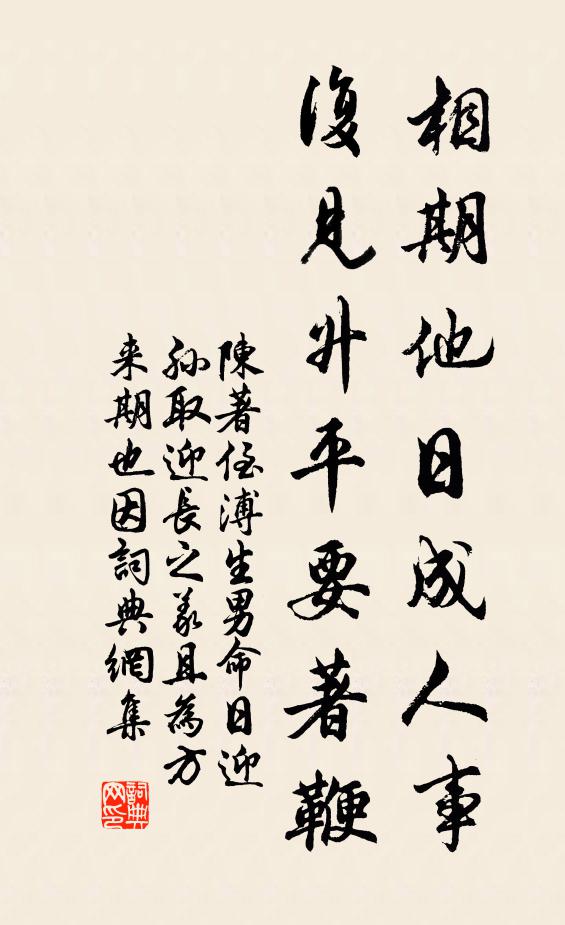 相期他日成人事
復見升平要著鞭
陳著侄溥生男命日迎
孙取迎長之義且為方
来期也因詞典網集
詞典
网印